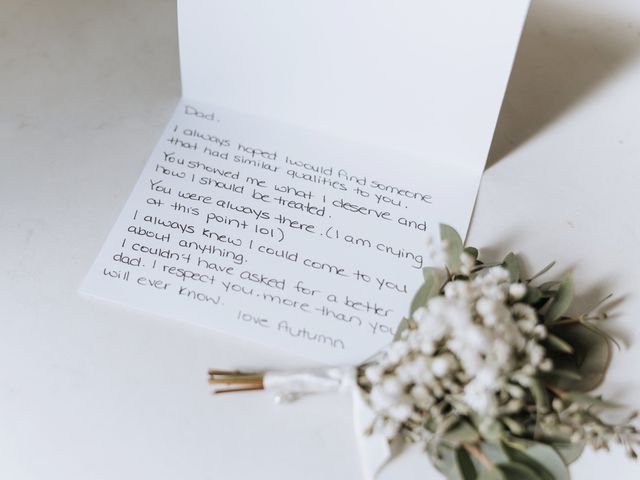 Dad,
I always hoped I would find someone
that had similar qualities to you.
You showed me what I deserve and
how I should be treated.
You were always there. (I am crying
at this point lol)
I always knew I could come to you
about anything.
I couldn't have asked for a better
dad. I respect you more than you
will ever know.
love Autumn